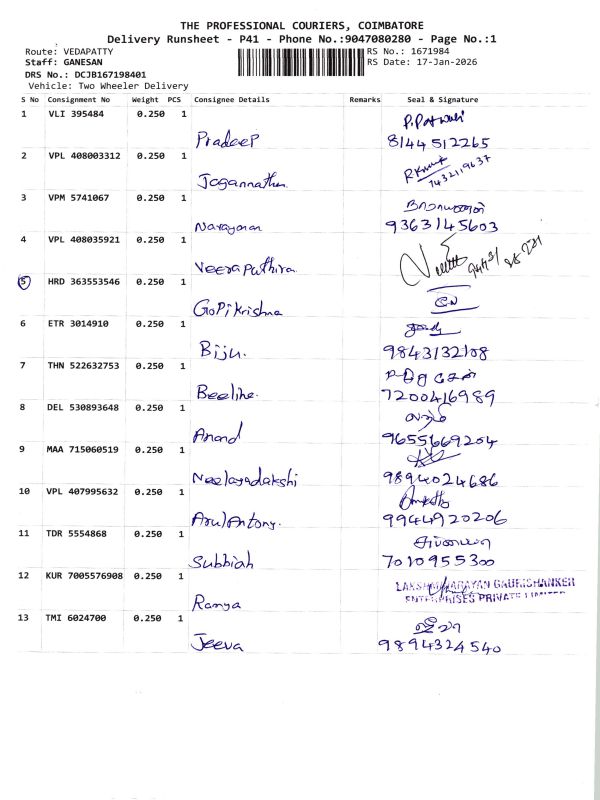 THE PROFESSIONAL COURIERS, COIMBATORE
Delivery Runsheet - P41 - Phone No.:9047080280 - Page No.:1
Route: VEDAPATTY
RS No.: 1671984
Staff: GANESAN
RS Date: 17-Jan-2026
DRS No.: DCJB167198401
Vehicle: Two Wheeler Delivery
S No Consignment No Weight PCS Consignee Details Remarks Seal & Signature
1 VLI 395484 0.250 1
Pradeep 8144512265
2 VPL 408003312 0.250 1
Jagannathan 7432119637
3 VPM 5741067 0.250 1 நாராயணன்
Narayanan 9363145603
4 VPL 408035921 0.250 1
Veerapathira
5 HRD 363553546 0.250 1
GoPikrishna
6 ETR 3014910 0.250 1
Biju. 9843132108
7 THN 522632753 0.250 1
Beeline. 7200416989
8 DEL 530893648 0.250 1
Anand 9655669204
9 MAA 715060519 0.250 1
Neelayadakshi 9894024686
10 VPL 407995632 0.250 1
Arul Antony. 9944920206
11 TDR 5554868 0.250 1
Subbiah 7010955300
12 KUR 7005576908 0.250 1 LAKSHMINARAYAN GAURISHANKER
ENTERPRISES PRIVATE LIMITED
Ramya
13 TMI 6024700 0.250 1 ஜீவா
Jeeva 9894324540